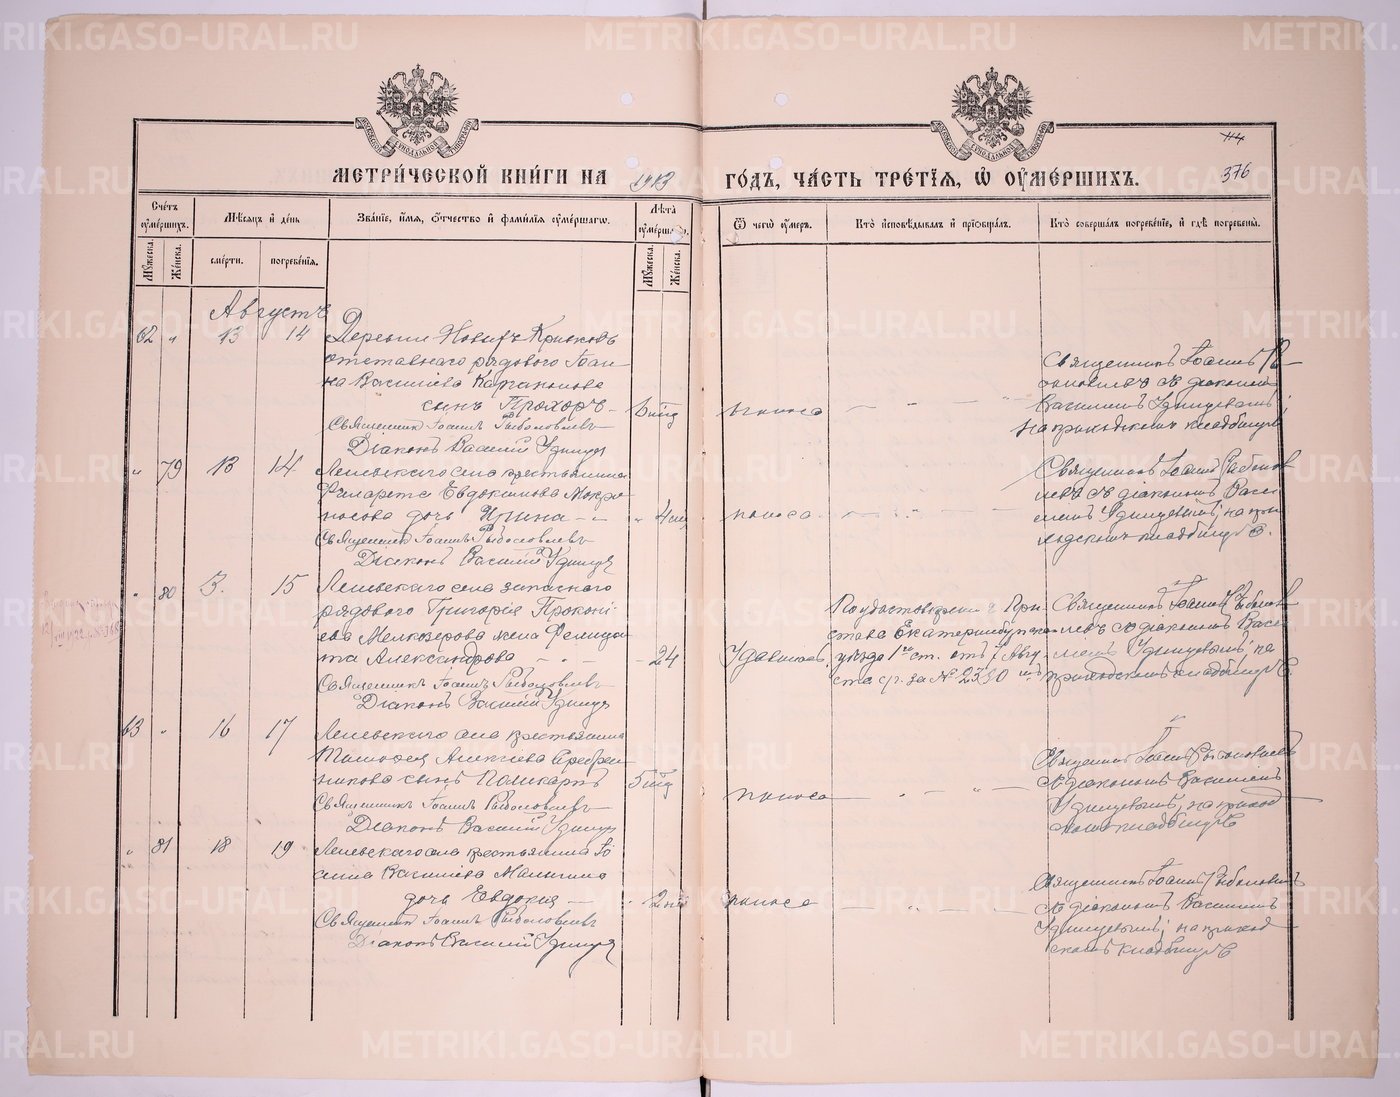 METRIKI.GASO-URAL.RU
МЕТРИ́ЧЕСКОЙ КНИ́ГИ НА 1913 ГО́ДЪ, ЧА́СТЬ ТРЕ́ТІЯ, Ѽ ОУМЕ́РШИХЪ.
376
Сче́тъ оуме́ршихъ.
Мѣ́сяцъ и́ день
Зва́ніе, и́мя, о́тчество и́ фами́лія оуме́ршагѡ.
Лѣ́та оуме́ршагѡ.
Ѿ чегѡ̀ оу́меръ.
Кто̀ и́сповѣ́дывалъ и́ пріѡбща́лъ.
Кто̀ соверша́лъ погребе́ніе, и́ гдѣ̀ погребены̀.
Му́жеска.
Же́нска.
сме́рти.
погребе́нія.
Му́жеска.
Же́нска.
Августъ
62 " 13 14
отставного рядового Іоан-
на Василіева
сынъ Прохоръ
Священникъ Іоаннъ Рыболовлевъ
Діаконъ Василій Удинцев
поноса
Священникъ Іоаннъ Ры-
боловлевъ съ діакономъ
Василіемъ Удинцевымъ;
на приходскомъ кладбищѣ
" 79 13 14
села крестьянина
Филарета Евдокимова Мокро-
носова дочь Ирина
Священникъ Іоаннъ Рыболовлевъ
Діаконъ Василій Удинцев
поноса
Священникъ Іоаннъ Рыболов-
левъ съ діакономъ Васи-
ліемъ Удинцевымъ; на при-
ходскомъ кладбищѣ.
" 80 3. 15
села запаснаго
рядового Григорія Прокопі-
ева Мелкозерова жена Фелица-
та Александрова
24
Священникъ Іоаннъ Рыболовлевъ
Діаконъ Василій Удинцев
Удавилась
По удостовѣренію При-
става Екатеринбургска-
уѣзда 1го ст. отъ Авгу-
ста с/г. за № 2330
Священникъ Іоаннъ Рыболов-
левъ съ діакономъ Васи-
ліемъ Удинцевымъ; на
приходскомъ кладбищѣ.
63 " 16 17
села крестьянина
Тимофея Алексіева Серебрен-
никова сынъ Поликарпъ
Священникъ Іоаннъ Рыболовлевъ
Діаконъ Василій Удинцев
поноса
Священникъ Іоаннъ Рыболовлевъ
съ діакономъ Василіемъ
Удинцевымъ; на приход-
скомъ кладбищѣ
" 81 18 19
села крестьянина Іо-
анна Василіева Малыгина
дочь Евдокія
Священникъ Іоаннъ Рыболовлевъ
Діаконъ Василій Удинцев
поноса
Священникъ Іоаннъ Рыболовлевъ
съ діакономъ Василіемъ
Удинцевымъ; на приход-
скомъ кладбищѣ